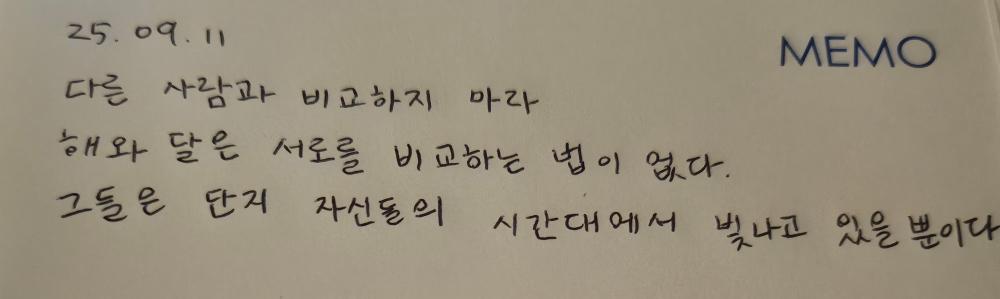 25. 09. 11
MEMO
다른 사람과 비교하지 마라
해와 달은 서로를 비교하는 법이 없다.
그들은 단지 자신들의 시간대에서 빛나고 있을 뿐이다